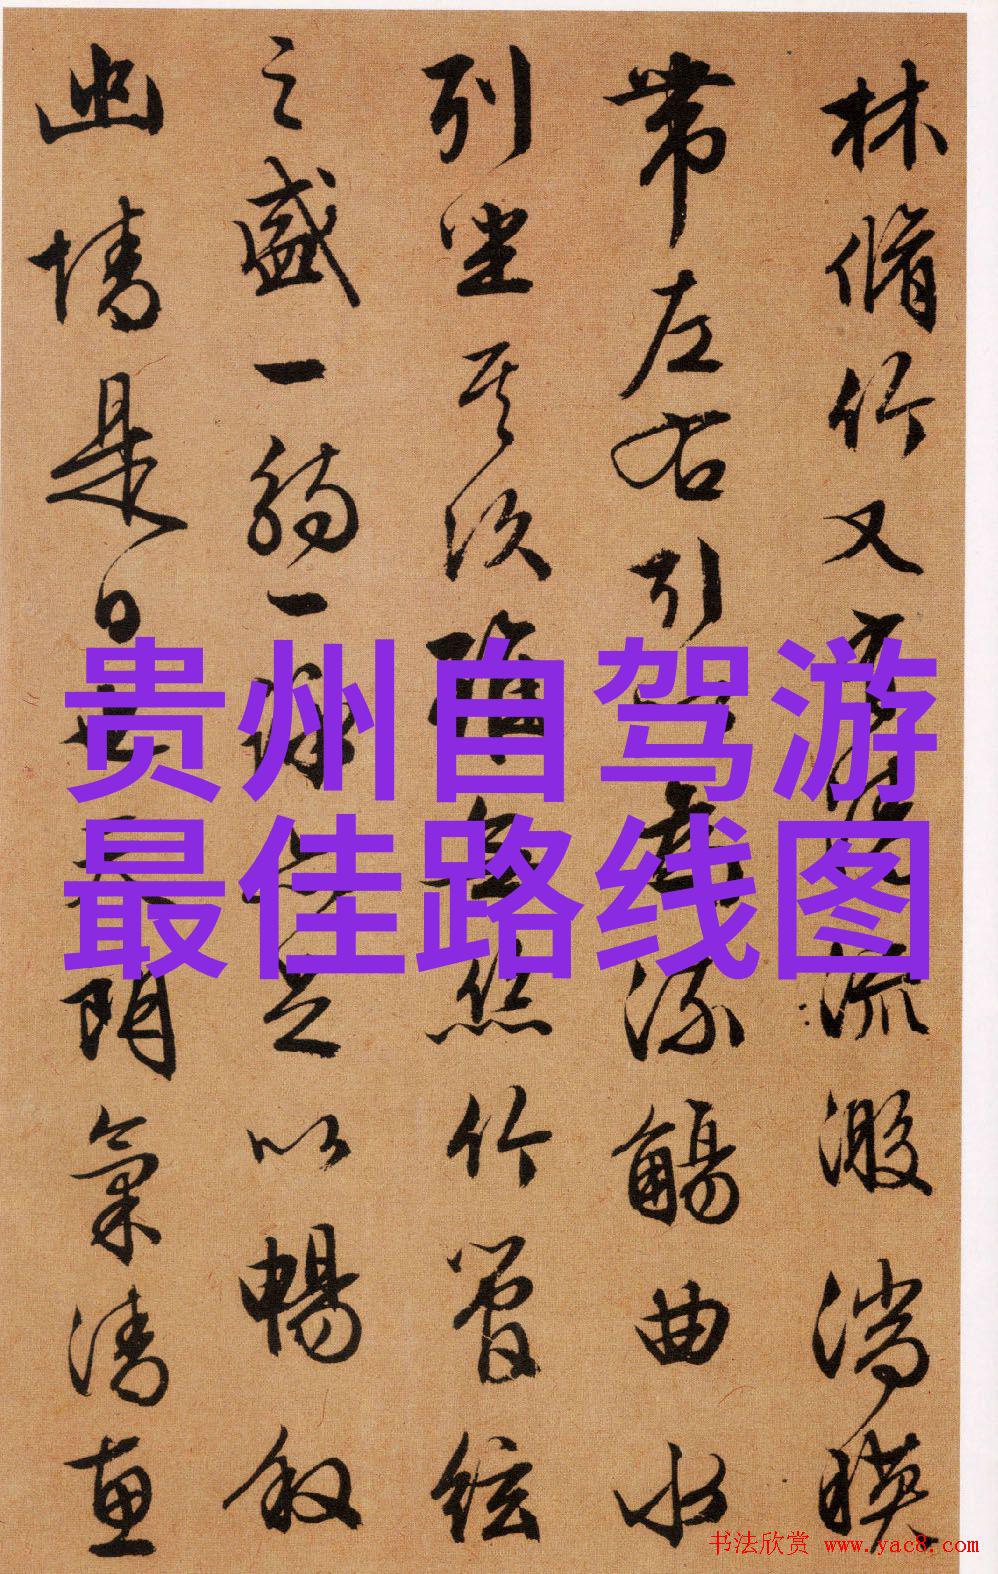 林脩竹又有清流激湍暎
帶左右引以為流觴曲水
列坐其次雖無絲竹管絃
之盛一觴一詠亦足以暢敘
幽情是日也天朗氣清惠
贵州自驾游
最佳路线图
书法欣赏 www.yac8.com